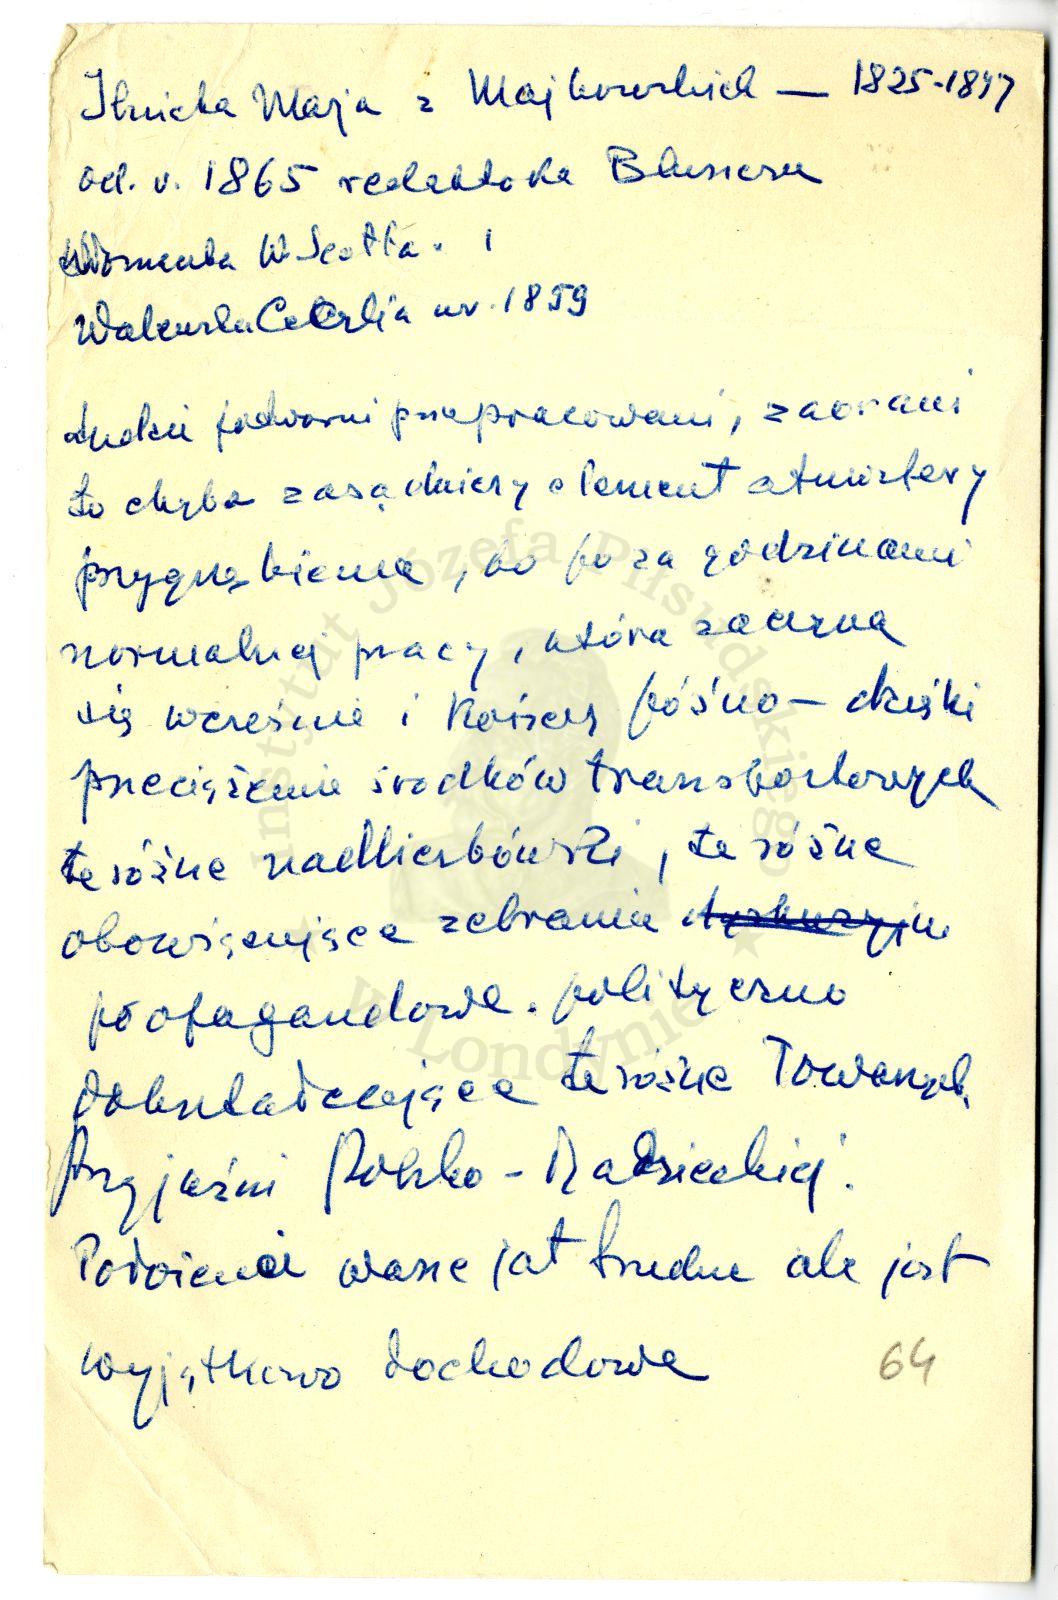 Ilnicka Maja z Majkowskich — 1825-1897
od. r. 1865 redaktorka Bluszczu
W. Scotta. i
Walewska Cecylia ur. 1859
Ludzie potwornie przepracowani, zaorani
to chyba zasadniczy element atmosfery
przygnębienia, bo poza godzinami
normalnej pracy, która zaczyna
się wcześnie i kończy późno — dzięki
przeciążenie środków transportowych
te różne nadliczbówki, te różne
obowiązujące zebrania dyskusyjne
propagandowe. polityczno
dokształcające te różne Towarzystw.
Przyjaźni Polsko - Radzieckiej.
wasze jest trudne ale jest
wyjątkowo dochodowe
64
Instytut Józefa Piłsudskiego
w Londynie